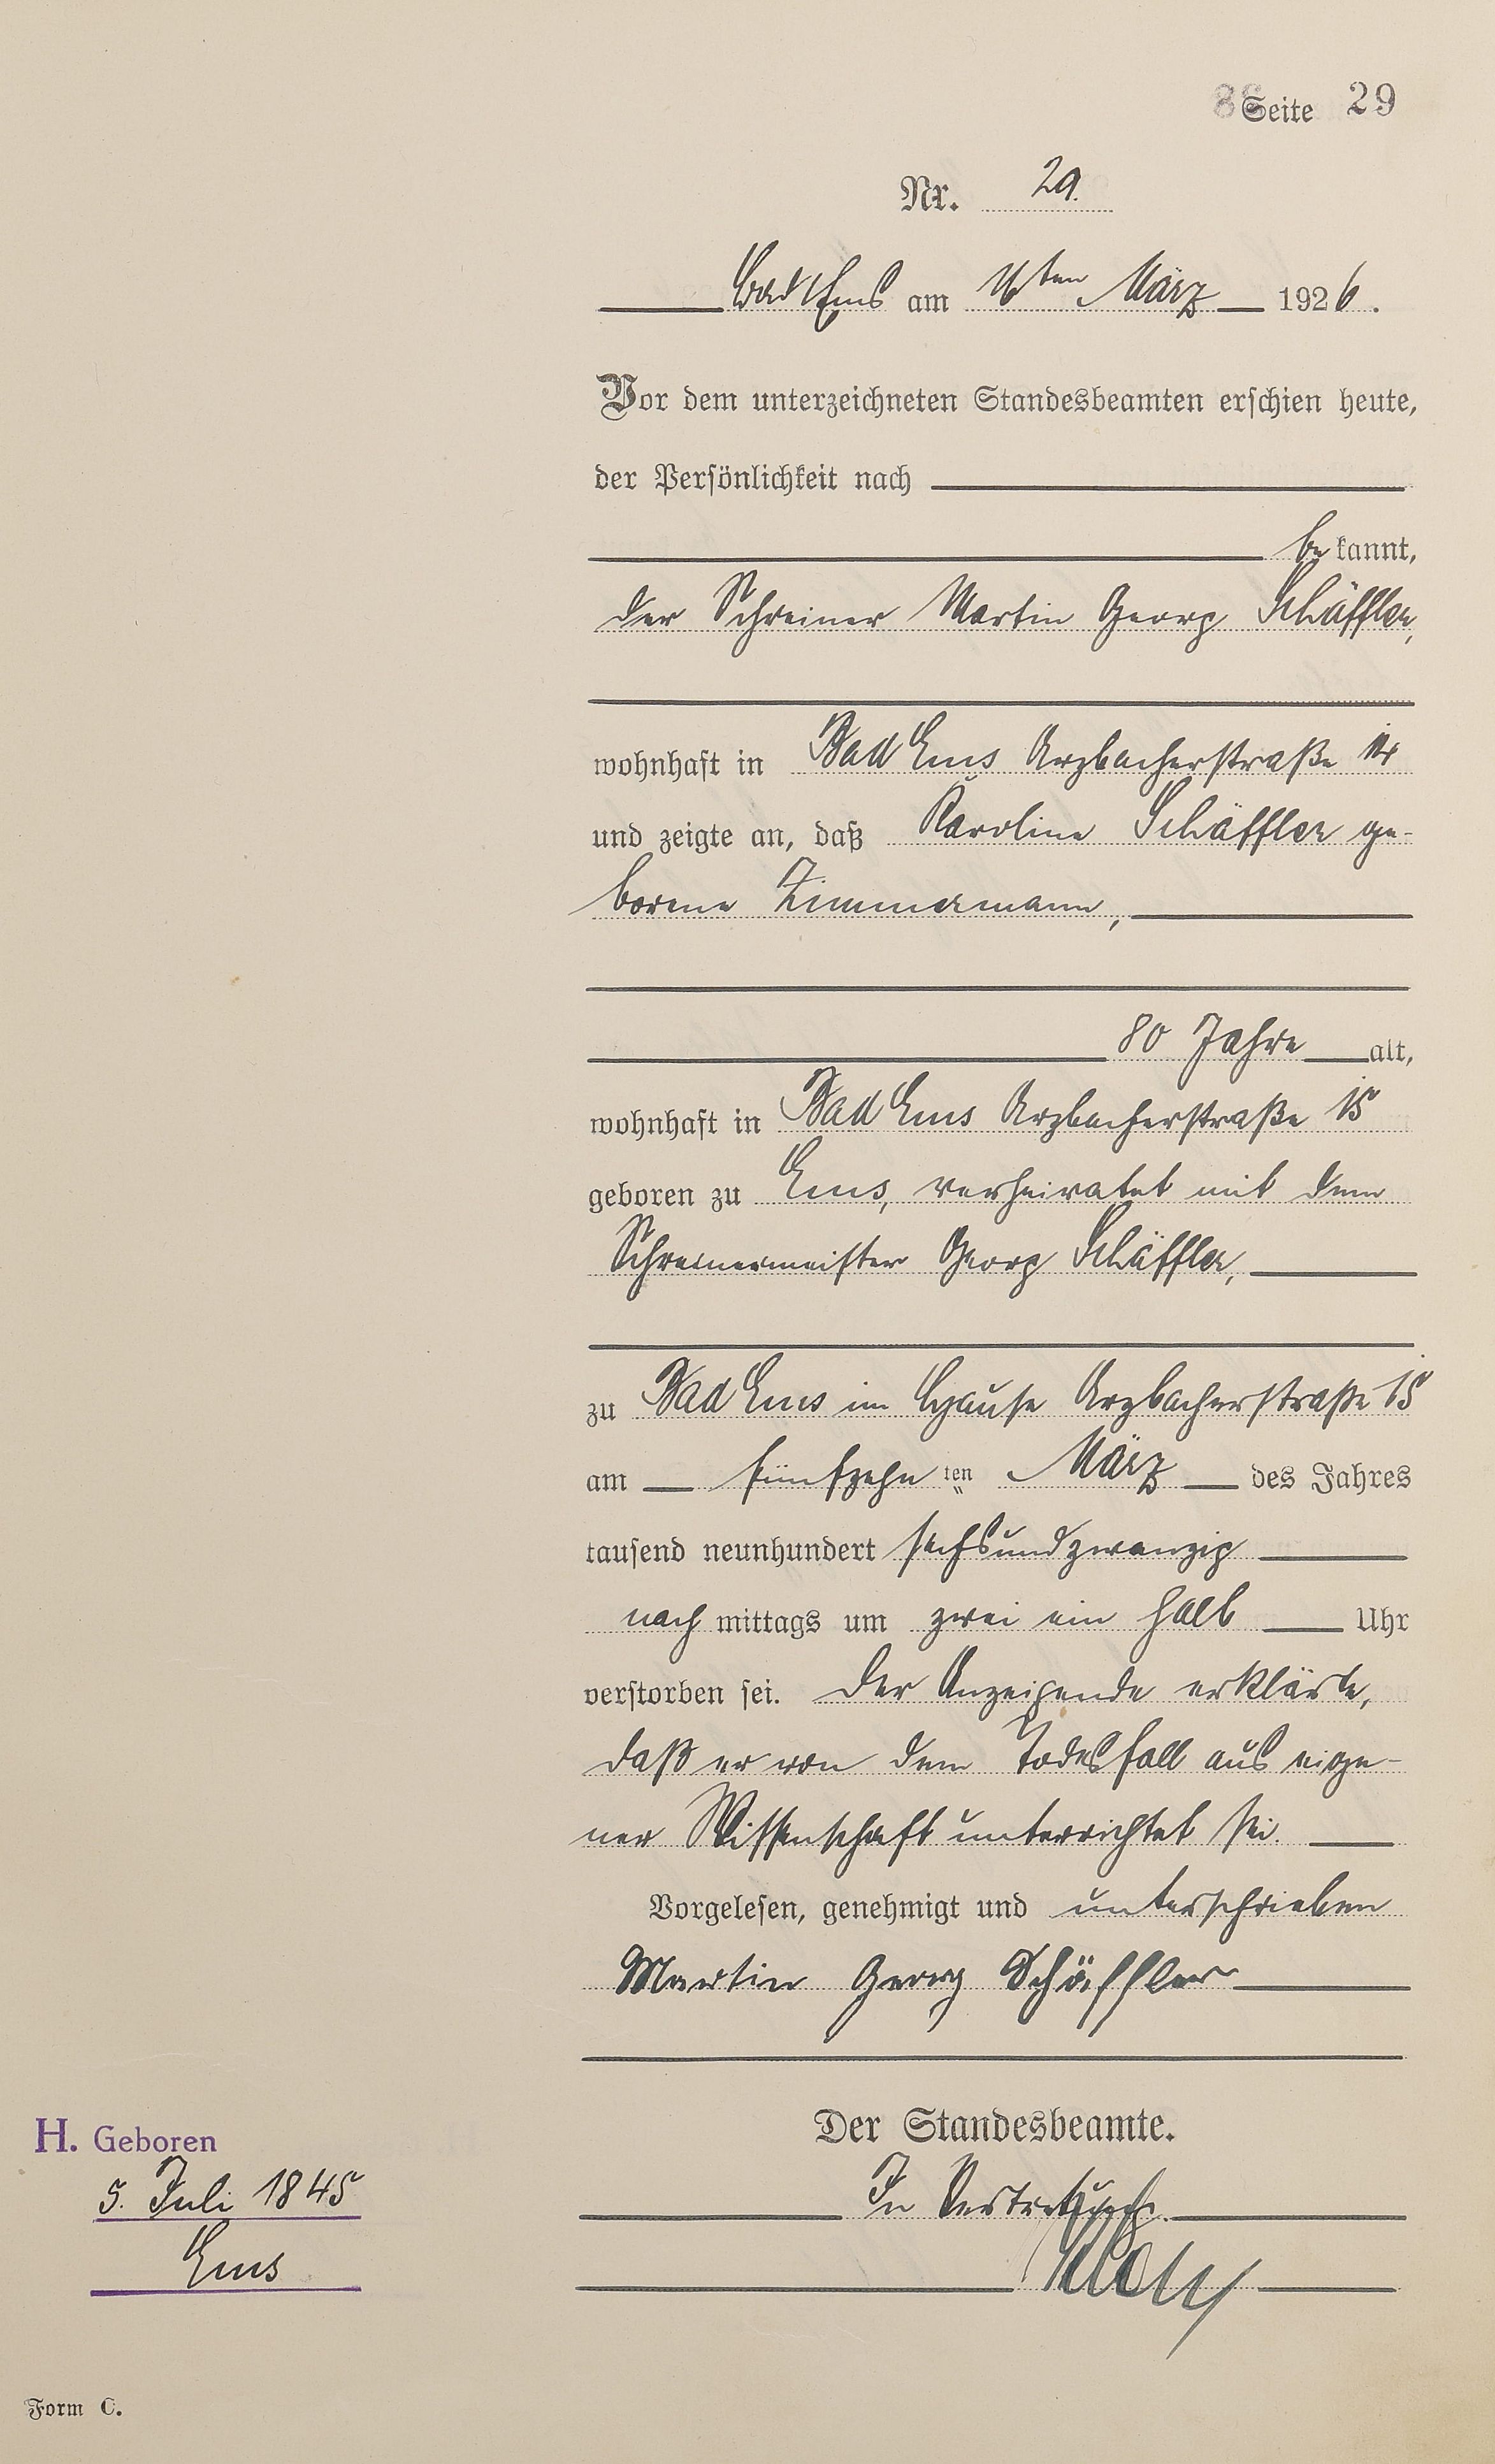 Seite 29
Nr. 29.
Bad Ems am 16ten März 1926.
Vor dem unterzeichneten Standesbeamten erschien heute,
der Persönlichkeit nach
be kannt,
der Schreiner Martin Georg Schäffler,
wohnhaft in Bad Ems Arzbacherstraße
und zeigte an, daß Karoline Schäffler ge-
borene Zimmermann,
80 Jahre alt,
wohnhaft in Bad Ems Arzbacherstraße 15
geboren zu Ems, verheiratet mit dem
Schreinermeister Georg Schäffler,
zu Bad Ems im Hause Arzbacherstraße 15
am fünfzehn ten März des Jahres
tausend neunhundert sechsundzwanzig
nach mittags um zwei ein halb Uhr
verstorben sei. Der Anzeigende erklärte,
daß er von dem Todesfall aus eige-
ner Wissenschaft unterrichtet sei.
Vorgelesen, genehmigt und unterschrieben
Martin Georg Schäffler
Der Standesbeamte.
In Vertretung.
H. Geboren
5. Juli 1845
Ems
Form C.